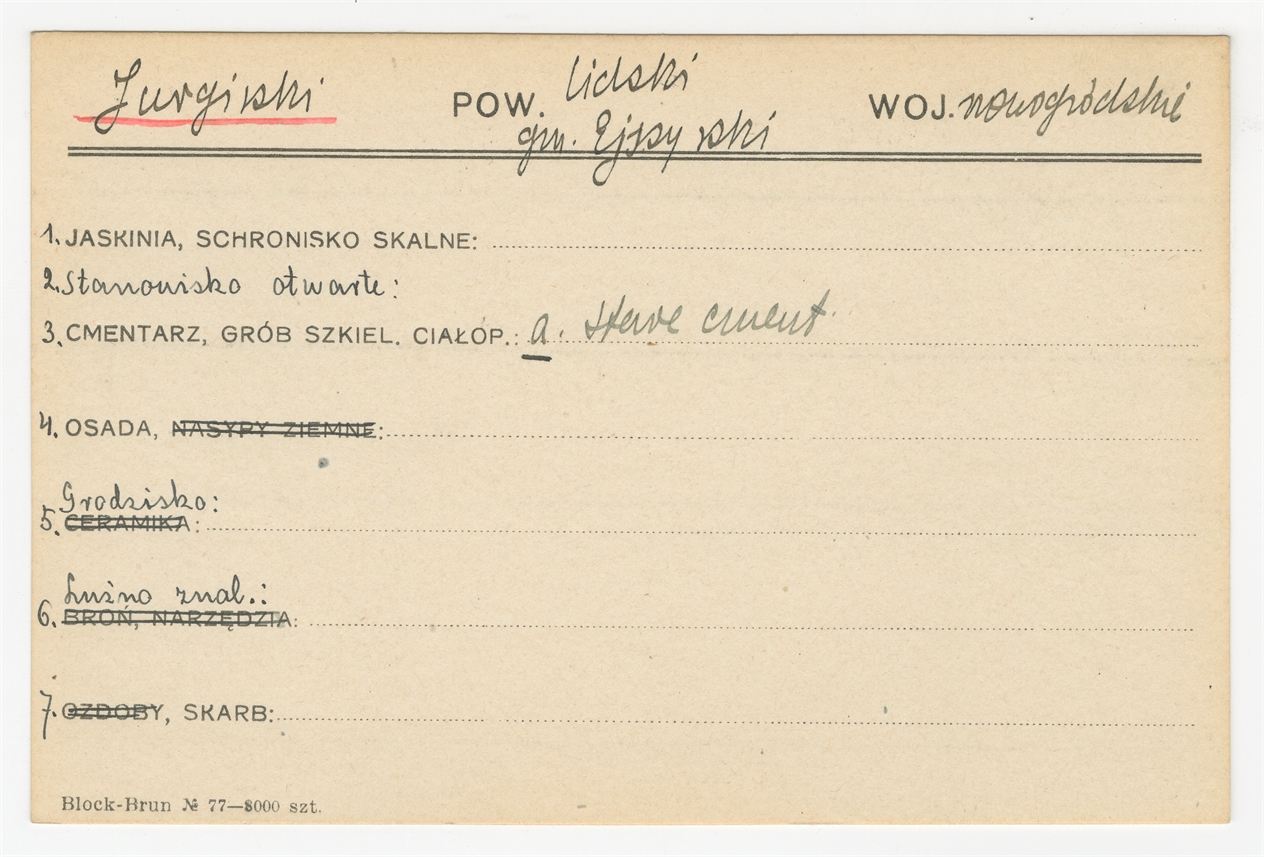 Jurgiski POW. lidski WOJ. nowogródskie
gm. Ejszyski
1. JASKINIA, SCHRONISKO SKALNE:
2. Stanowisko otwarte:
3. CMENTARZ, GRÓB SZKIEL. CIAŁOP.: a. stare cment.
4. OSADA, NASYPY ZIEMNE:
Grodzisko:
5. CERAMIKA:
Luźno znal.:
6. BROŃ, NARZĘDZIA:
7. OZDOBY, SKARB:
Block-Brun № 77—8000 szt.